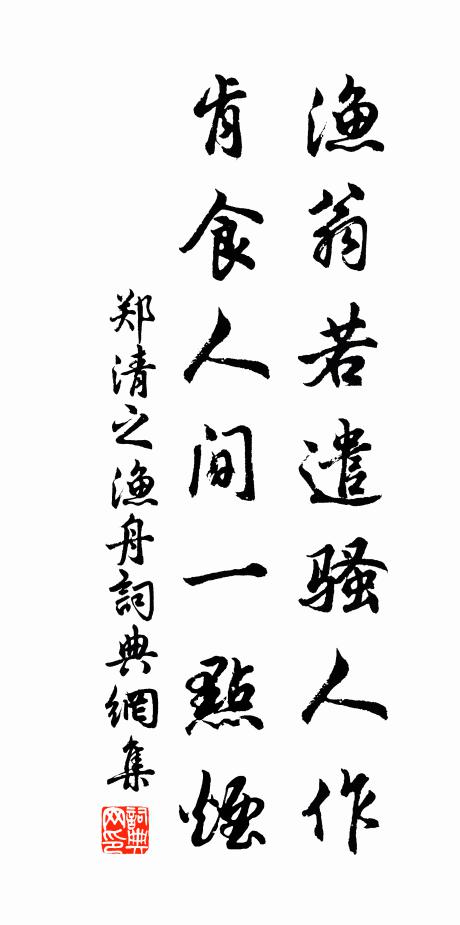 渔翁若遣骚人作
肯食人间一點煙
郑清之渔舟詞典網集
詞典网印